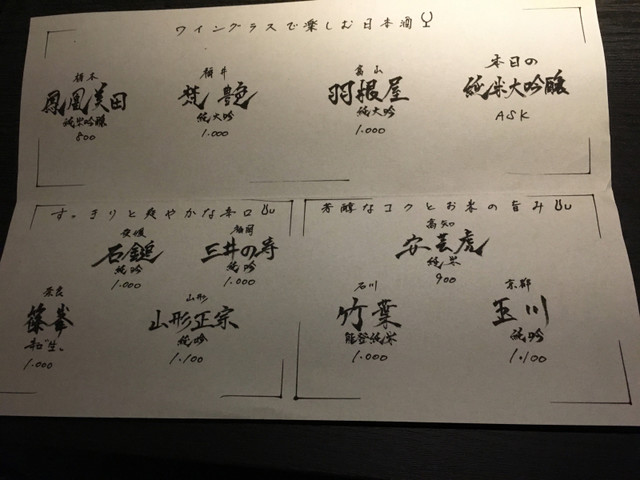 ワイングラスで楽しむ日本酒
栃木
鳳凰美田
純米吟醸
800
福井
梵 艶
純大吟
1.000
富山
羽根屋
純大吟
1.000
本日の
純米大吟醸
ASK
すっきりと爽やかな辛口
愛媛
石鎚
純吟
1.000
福岡
三井の寿
純吟
1.000
奈良
篠峯
1.000
山形
山形正宗
純吟
1.100
芳醇なコクとお米の旨み
高知
安芸虎
純米
900
石川
竹葉
能登純米
1.000
京都
玉川
純吟
1.100